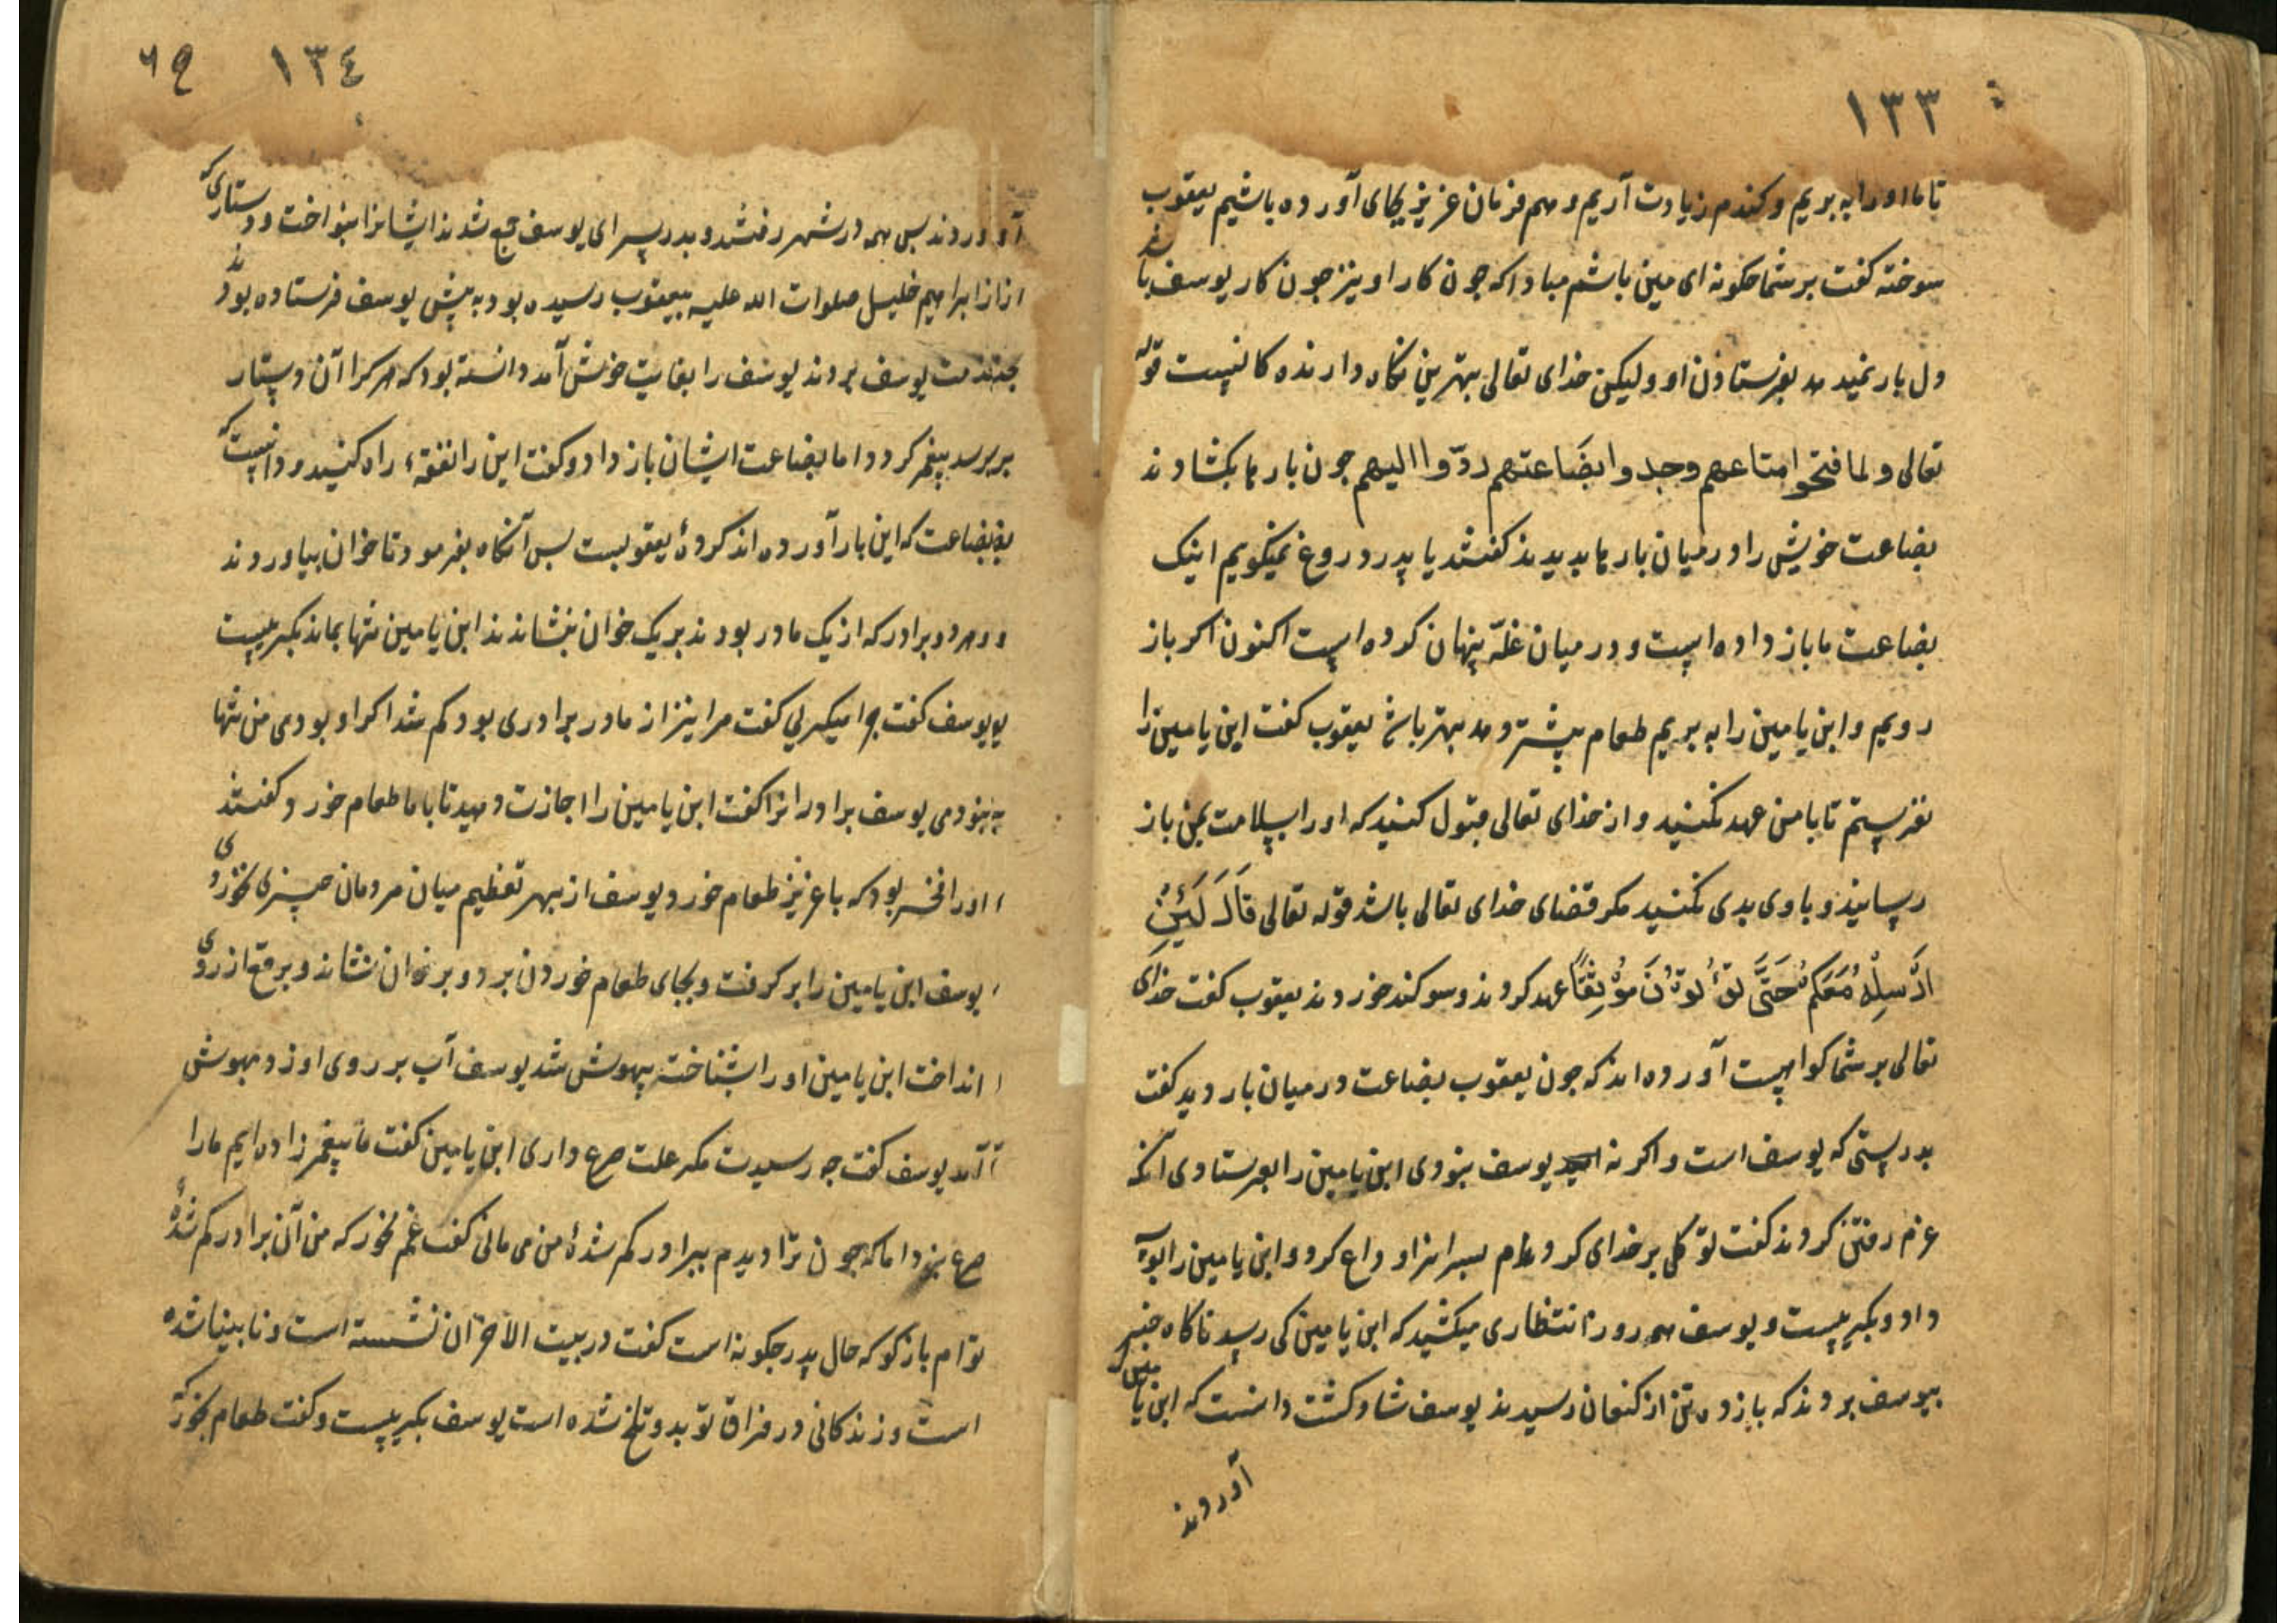 ١٣٣
تا ما او را به بریم و کندم زیادت آریم و هم فرمان عزیز بجای آورده باشیم یعقوب
سوخته کفت بر شما چکونه ای مین باشم مبادا که جون کار او نیز جون کار یوسف باشد
دل بار نمیدهد بفرستادن او ولیکن خدای تعالی بهترین نکاه دارنده کانیست قوله
تعالی ولما فتحوا متاعهم وجدوا بضاعتهم ردّوا الیهم جون بارها بکشادند
بضاعت خویش را در میان بارها بدیدند کفتند یا پدر دروغ نمیکویم اینک
بضاعت ما باز داده است و در میان غلّه پنهان کرده است اکنون اکر باز
رویم و ابن یامین را به بریم طعام بیشتر دهد بهتر باشد یعقوب کفت ابن یامین را
نفرستم تا با من عهد نکنید و از خدای تعالی قبول کنید که او را بسلامت بمن باز
رسانید و با وی بدی نکنید مکر قضای خدای تعالی باشد قوله تعالی قَالَ لَنْ
اُرْسِلَهُ مَعَکُمْ حَتَّی تُؤْتُونَ مَوْثِقًا عهد کردند و سوکند خوردند یعقوب کفت خدای
تعالی بر شما کواهست آورده اند که جون یعقوب بضاعت در میان بار دید کفت
بدرستی که یوسف است و اکر نه یوسف بنودی ابن یامین را بفرستادی آنکه
عزم رفتن کردند کفت توکلی بر خدای کردم بسرانرا وداع کرد و ابن یامین را
داد و بکریست و یوسف همه روز انتظاری میکشید که ابن یامین کی رسد ناکاه خبر
بیوسف بردند که یازده تن از کنعان رسیدند یوسف شاد کشت دانست که ابن یامین را
آوردند
١٣٤
٦٩
آوردند بس همه در شهر رفتند و بدر سرای یوسف جمع شدند ایشانرا بنواخت و دستاری که
از ابراهیم خلیل صلوات الله علیه بیعقوب رسیده بود به پیش یوسف فرستاده بود
بخدمت یوسف بردند یوسف را بغایت خوش آمد دانسته بود که هر کرا آن دستار
بر سر رسد پیغمبر کردد اما بضاعت ایشان باز داد و کفت این را نفقهٔ راه کنید و دانست که
بضاعت که این بار آورده اند کردهٔ یعقوبست بس آنکاه بفرمود تا خوان بیاوردند
و هر دو برادر که از یک مادر بودند بر یک خوان بنشاندند ابن یامین تنها بماند بکریست
یوسف کفت چرا میکریی کفت مرا نیز از مادر برادری بود کم شد اکر او بودی من تنها
نبودمی یوسف برادرانرا کفت ابن یامین را اجازت دهید تا با ما طعام خورد کفتند
او را فخر بود که با عزیز طعام خورد یوسف از بهر تعظیم میان مردمان چیزی نخوردی
یوسف ابن یامین را بر کرفت و بجای طعام خوردن برد و بر خوان نشاند و برقع از روی
انداخت ابن یامین او را بشناخت بیهوش شد یوسف آب بر روی او زد بهوش
آمد یوسف کفت چه رسیدت مکر علت صرع داری ابن یامین کفت ما پیغمبر زاده ایم ما را
صرع نبود اما که جون ترا دیدم ببرادر کم شدهٔ من می مانی کفت غم مخور که من آن برادر کم شدهٔ
توام باز کو که حال پدر چکونه است کفت در بیت الاحزان نشسته است و نابینا شده
است و زندکانی در فراق تو بدو تلخ شده است یوسف بکریست و کفت طعام بخور که